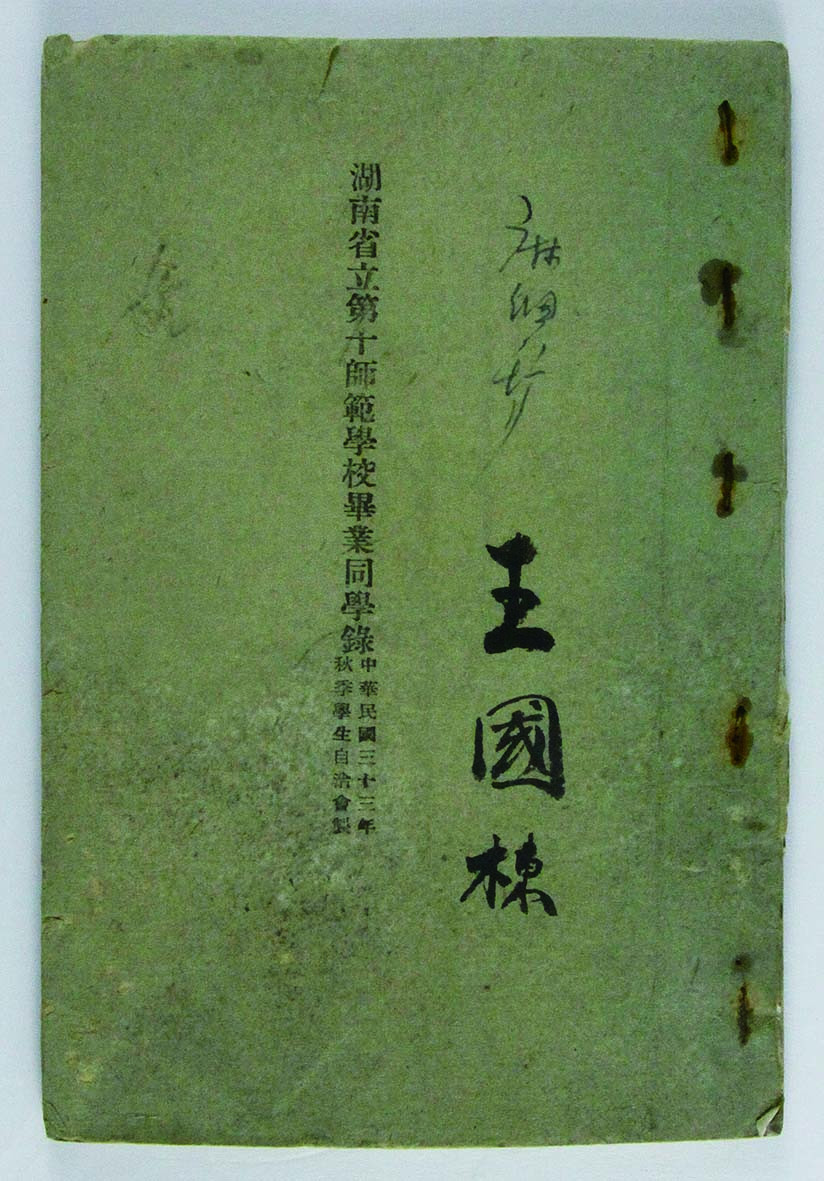 王國棟
湖南省立第十師範學校畢業同學錄
中華民國三十三年
秋季學生自治會製